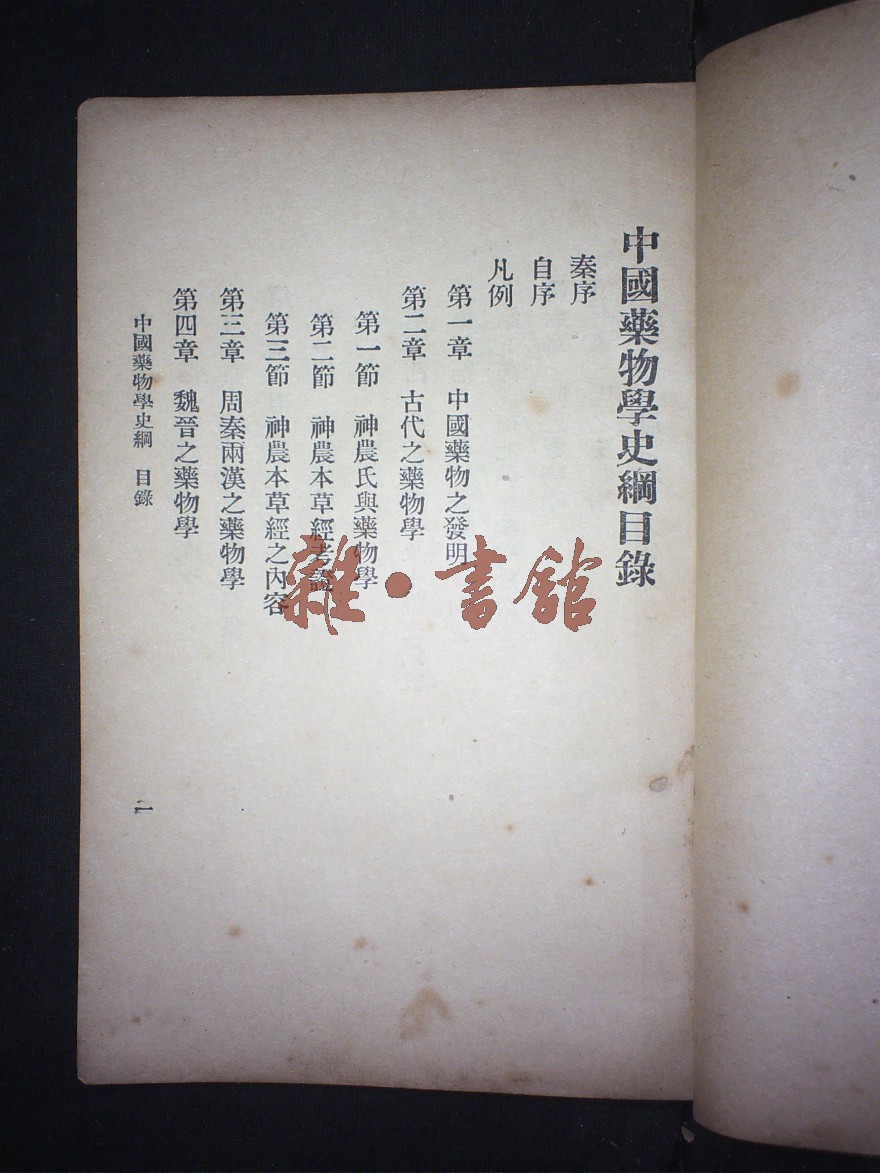 中國藥物學史綱目錄
秦序
自序
凡例
第一章 中國藥物之發明
第二章 古代之藥物學
第一節 神農氏與藥物學
第二節 神農本草經考證
第三節 神農本草經之內容
第三章 周秦兩漢之藥物學
第四章 魏晉之藥物學
中國藥物學史綱 目錄
二
雜·書館